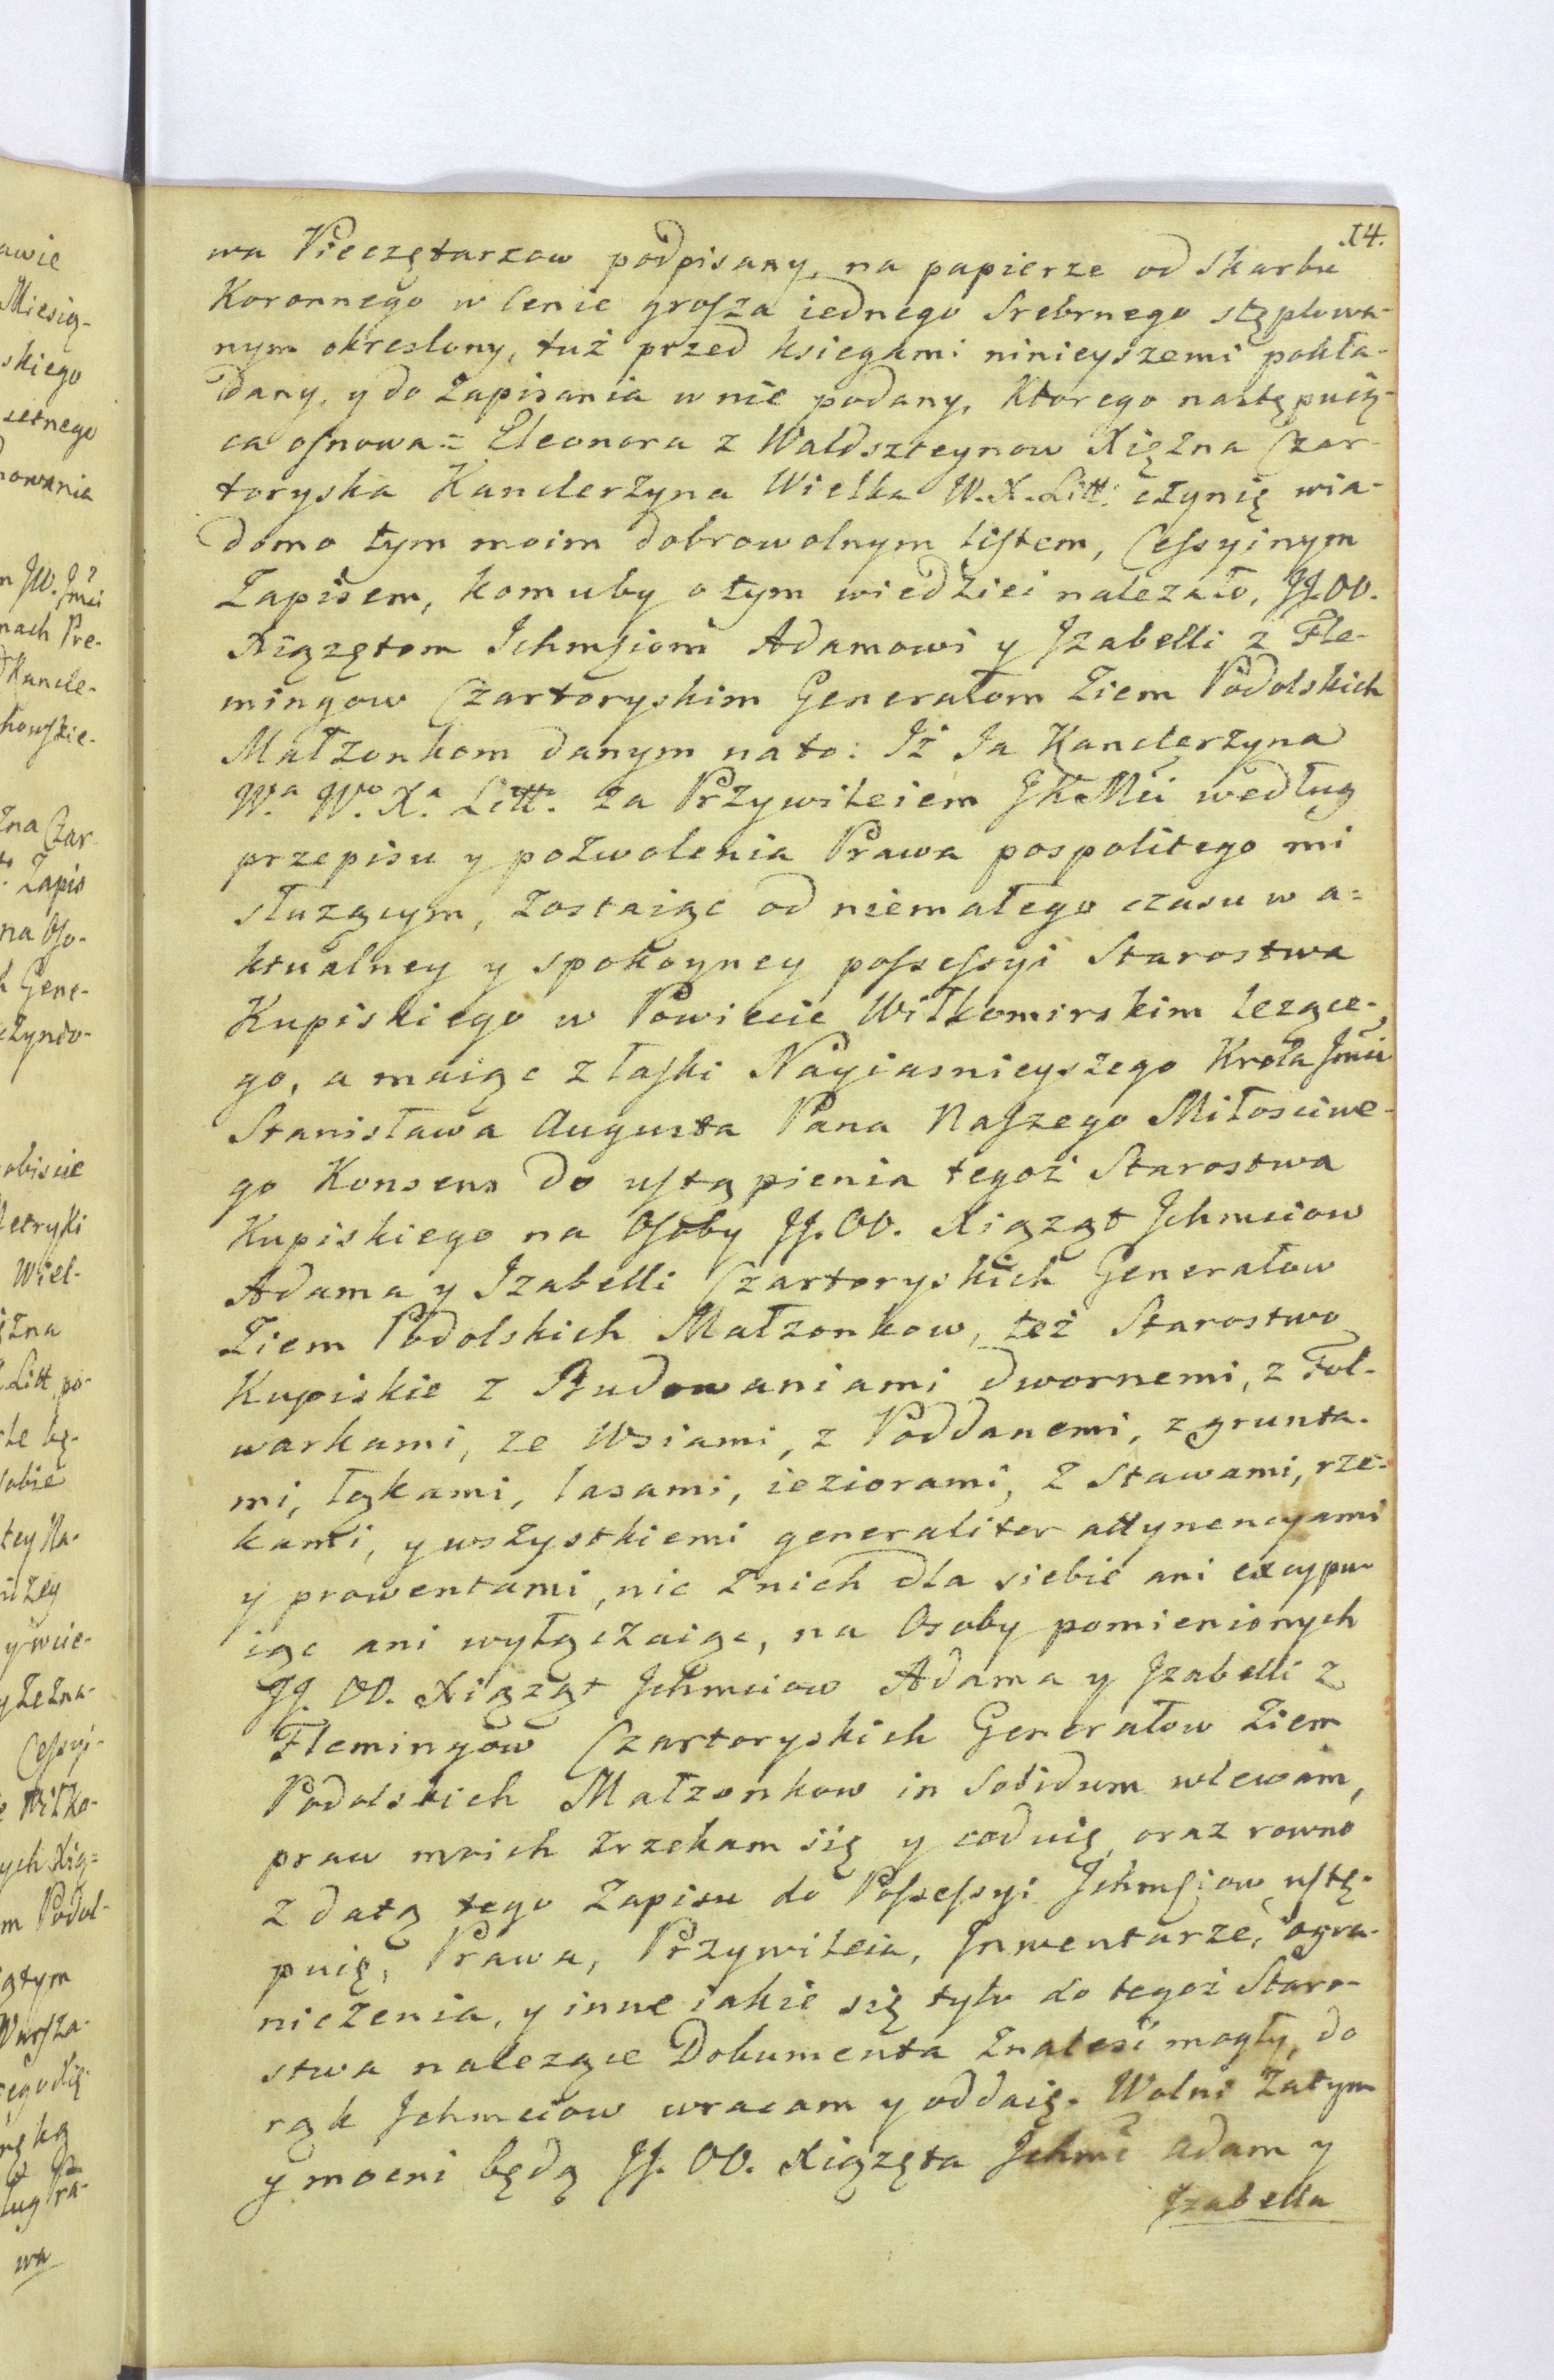 14.
wa Pieczętarzow podpisany, na papierze od Skarbu
Koronnego w Cenie grosza iednego Srebrnego stęplowa-
nym okreslony, tuż przed ksiegami ninieyszemi pokła-
dany, y do Zapisania w nie podany, Ktorego następuią-
ca osnowa = Eleonora z Waldszteynow Xiężna Czar-
toryska Kanclerzyna Wielka W. X. Litt: czynię wia-
domo tym moim dobrowolnym listem, Cessyinym
Zapisem, komuby o tym wiedziei nalezało, JJ. OO.
Xiązętom Ichmsiom Adamowi y Izabelli z Fle-
mingow Czartoryskim Generałom Ziem Podolskich
Małzonkom danym na to: Iż Ja Kanclerzyna
Wa. Wo. Xa. Litt. za Przywileiem JKMci według
przepisu y pozwolenia Prawa pospolitego mi
służącym, zostaiąc od niemałego czasu w a=
ktualney y spokoyney possessyi Starostwa
Kupiskiego w Powiecie Wiłkomirskim lezące-
go, a maiąc z łaski Nayiasnieyszego Krola Jmci
Stanisława Augusta Pana Naszego Miłosciwe-
go Konsens do ustąpienia tegoż Starostwa
Kupiskiego na Osoby JJ. OO. Xiąząt Ichmciow
Adama y Izabelli Czartoryskich Generałow
Ziem Podolskich Małzonkow, też Starostwo
Kupiskie z Budowaniami dwornemi, z Fol-
warkami, ze Wsiami, z Poddanemi, z grunta-
mi, łąkami, lasami, ieziorami, z Stawami, rze-
kami, y wszystkiemi generaliter attynencyami
y prowentami, nic z nich dla siebie ani excypu-
iąc ani wyłączaiąc, na Osoby pomienionych
JJ. OO. Xiąząt Ichmciow Adama y Izabelli z
Flemingow Czartoryskich Generałow Ziem
Podolskich Małzonkow in Solidum wlewam,
praw moich zrzekam się y coduię, oraz rowno
z datą tego Zapisu do Possessyi Ichmsiow ustę-
puię, Prawa, Przywileia, Inwentarze, ogra-
niczenia, y inne iakie się tylo do tegoż Staro-
stwa nalezące Dokumenta znalesi mogły, do
rąk Ichmciow wracam y oddaię. Wolni zatym
y mocni będą JJ. OO. Xiązęta Ichmć Adam y
Izabella